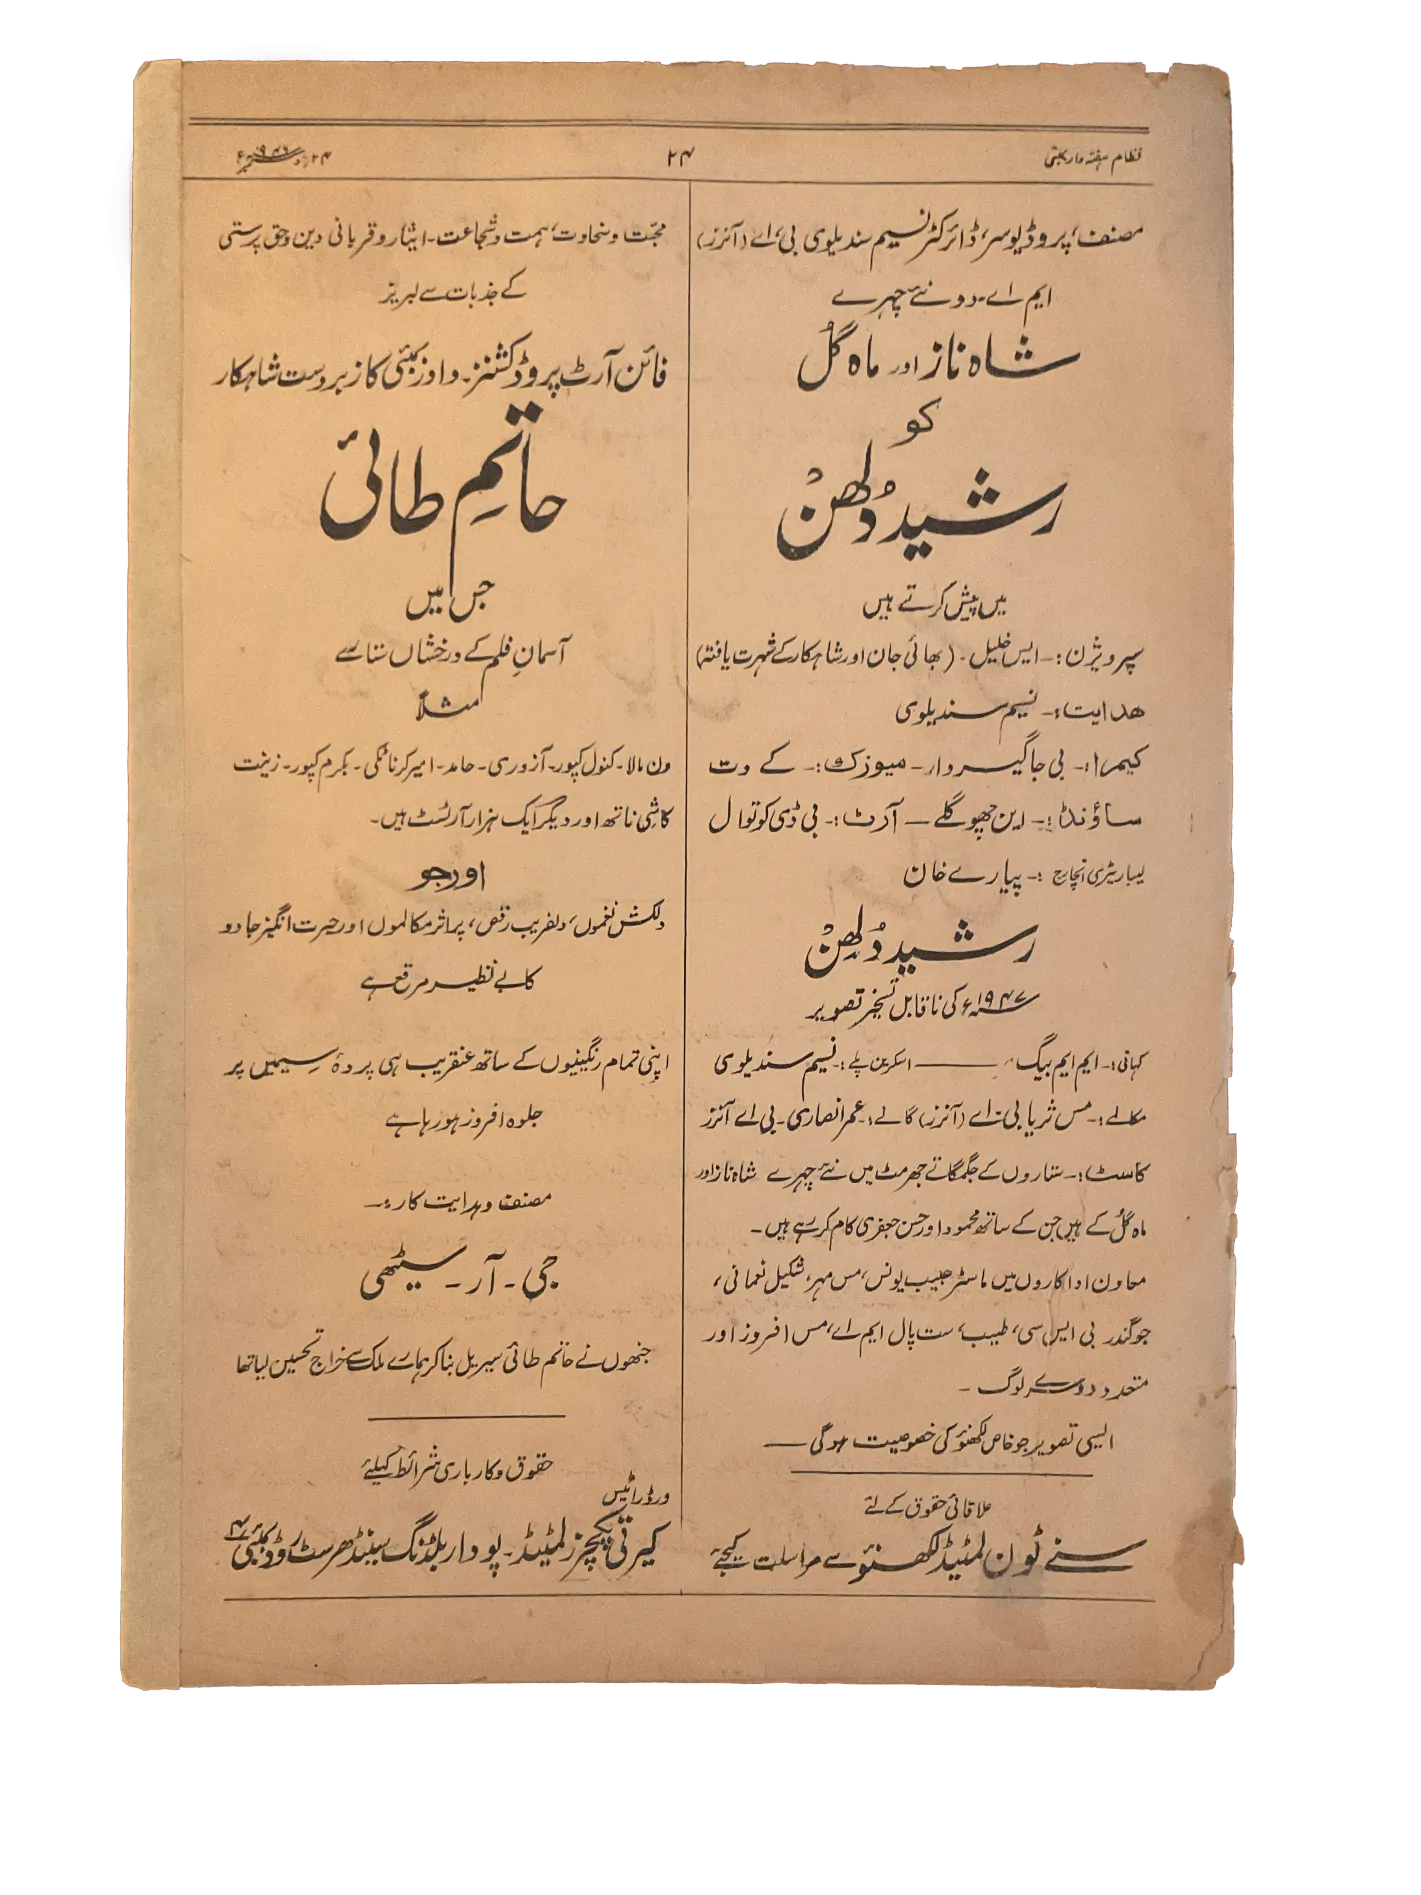 نظام ہفتہ وار بمبئی
۲۴
۲۴ دسمبر ۱۹۴۶ء
مصنف، پروڈیوسر، ڈائرکٹر نسیم سندیلوی بی، اے (آنرز)
ایم اے۔ دو نئے چہرے
شاہ ناز اور ماہ گُل
کو
رشید دُلھنْ
میں پیش کرتے ہیں
سپرویژن:۔ ایس خلیل۔ (بھائی جان اور شاہکار کے شہرت یافتہ)
ھدایت:۔ نسیم سندیلوی
کیمرا:۔ بی جاگیردار۔ میوزک:۔ کے دت
ساؤنڈ:۔ این چھوگلے — آرٹ:۔ بی ڈی کوتوال
لیباریٹری انچارج :۔ پیارے خان
رشید دُلھنْ
۱۹۴۷ء کی ناقابل تسخیر تصویر
کہانی:۔ ایم ایم بیگ — اسکرین پلے:۔ نسیم سندیلوی
مکالمے:۔ مس ثریا بی۔ اے (آنرز) گانے:۔ عمر انصاری۔ بی اے آنرز
کاسٹ:۔ ستاروں کے جگمگاتے جھرمٹ میں نئے چہرے شاہ ناز اور
ماہ گُل کے ہیں جن کے ساتھ محمود اور حسن جعفری کام کر رہے ہیں۔
معاون اداکاروں میں ماسٹر حبیب یونس، مس مہر، شکیل نعمانی،
جوگندر بی ایس سی، طبیب، ست پال ایم اے، مس افروز اور
متعدد دوسرے لوگ ۔
ایسی تصویر جو خاص لکھنؤ کی خصوصیت ہوگی —
علاقائی حقوق کے لئے
سنے ٹون لمٹیڈ لکھنؤ سے مراسلت کیجئے
محبّت و سخاوت، ہمت و شجاعت۔ ایثار و قربانی دین و حق پرستی
کے جذبات سے لبریز
فائن آرٹ پروڈکشنز۔ دادر بمبئی کا زبردست شاہکار
حاتمِ طائی
جس میں
آسمانِ فلم کے درخشاں ستارے
مثلاً
ون مالا۔ کنول کپور۔ آزوری۔ حامد۔ امیر کرناٹکی۔ بکرم کپور۔ زینت
کاشی ناتھ اور دیگر ایک ہزار آرٹسٹ ہیں۔
اور جو
دلکش نغموں، دلفریب رقص، پر اثر مکالموں اور حیرت انگیز جادو
کا بے نظیر مرقع ہے
اپنی تمام رنگینیوں کے ساتھ عنقریب ہی پردۂ سیمیں پر
جلوہ افروز ہو رہا ہے
مصنف و ہدایت کار:۔
جی۔ آر۔ سیٹھی
جنھوں نے حاتم طائی سیریل بنا کر ہمارے ملک سے خراج تحسین لیا تھا
حقوق و کاروباری شرائط کیلئے
ورلڈ رائٹس
کیرتی پکچرز لمٹیڈ۔ پودار بلڈنگ سینڈھرسٹ روڈ بمبئی ۴